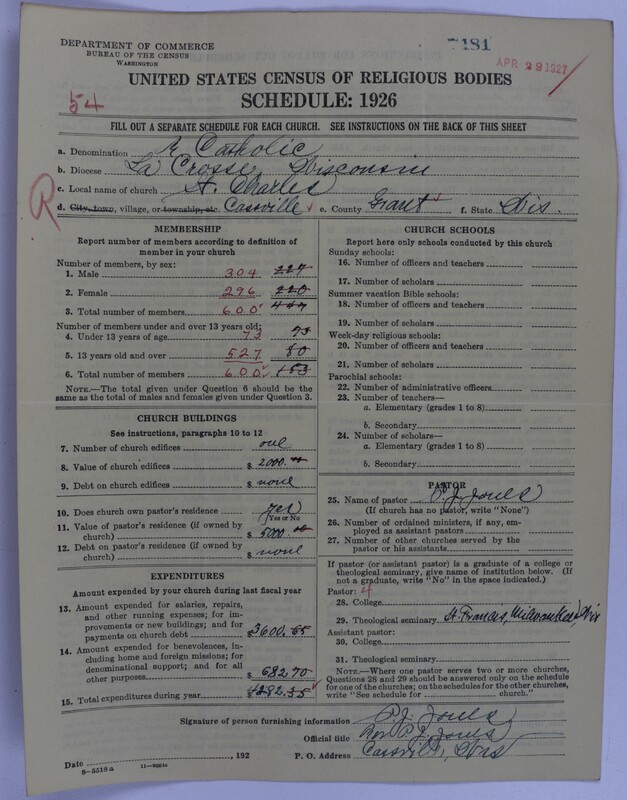 DEPARTMENT OF COMMERCE
BUREAU OF THE CENSUS
WASHINGTON
7181
APR 29 1927
UNITED STATES CENSUS OF RELIGIOUS BODIES
SCHEDULE: 1926
54
FILL OUT A SEPARATE SCHEDULE FOR EACH CHURCH. SEE INSTRUCTIONS ON THE BACK OF THIS SHEET
a. Denomination R Catholic
b. Diocese La Crosse, Wisconsin
c. Local name of church St. Charles
R
d. City, town, village, or township, etc. Cassville e. County Grant f. State Wis.
MEMBERSHIP
Report number of members according to definition of member in your church
Number of members, by sex:
1. Male 304 227
2. Female 296 220
3. Total number of members 600 447
Number of members under and over 13 years old:
4. Under 13 years of age 73 73
5. 13 years old and over 527 80
6. Total number of members 600 153
NOTE.—The total given under Question 6 should be the same as the total of males and females given under Question 3.
CHURCH BUILDINGS
See instructions, paragraphs 10 to 12
7. Number of church edifices one
8. Value of church edifices $ 2000.
9. Debt on church edifices $ none
10. Does church own pastor's residence yes
Yes or No
11. Value of pastor's residence (if owned by church) $ 5000.
12. Debt on pastor's residence (if owned by church) $ none
EXPENDITURES
Amount expended by your church during last fiscal year
13. Amount expended for salaries, repairs, and other running expenses; for improvements or new buildings; and for payments on church debt $ 3600.65
14. Amount expended for benevolences, including home and foreign missions; for denominational support; and for all other purposes $ 682.70
15. Total expenditures during year $ 4282.35
CHURCH SCHOOLS
Report here only schools conducted by this church
Sunday schools:
16. Number of officers and teachers
17. Number of scholars
Summer vacation Bible schools:
18. Number of officers and teachers
19. Number of scholars
Week-day religious schools:
20. Number of officers and teachers
21. Number of scholars
Parochial schools:
22. Number of administrative officers
23. Number of teachers—
a. Elementary (grades 1 to 8)
b. Secondary
24. Number of scholars—
a. Elementary (grades 1 to 8)
b. Secondary
PASTOR
25. Name of pastor P. J. Jones
(If church has no pastor, write "None")
26. Number of ordained ministers, if any, employed as assistant pastors
27. Number of other churches served by the pastor or his assistants
If pastor (or assistant pastor) is a graduate of a college or theological seminary, give name of institution below. (If not a graduate, write "No" in the space indicated.)
Pastor: 4
28. College
29. Theological seminary St. Francis, Milwaukee, Wis
Assistant pastor:
30. College
31. Theological seminary
NOTE.—Where one pastor serves two or more churches, Questions 28 and 29 should be answered only on the schedule for one of the churches; on the schedules for the other churches, write "See schedule for church."
Signature of person furnishing information P. J. Jones
Official title Rev. P. J. Jones
Date , 192 P. O. Address Cassville, Wis
8-5518a